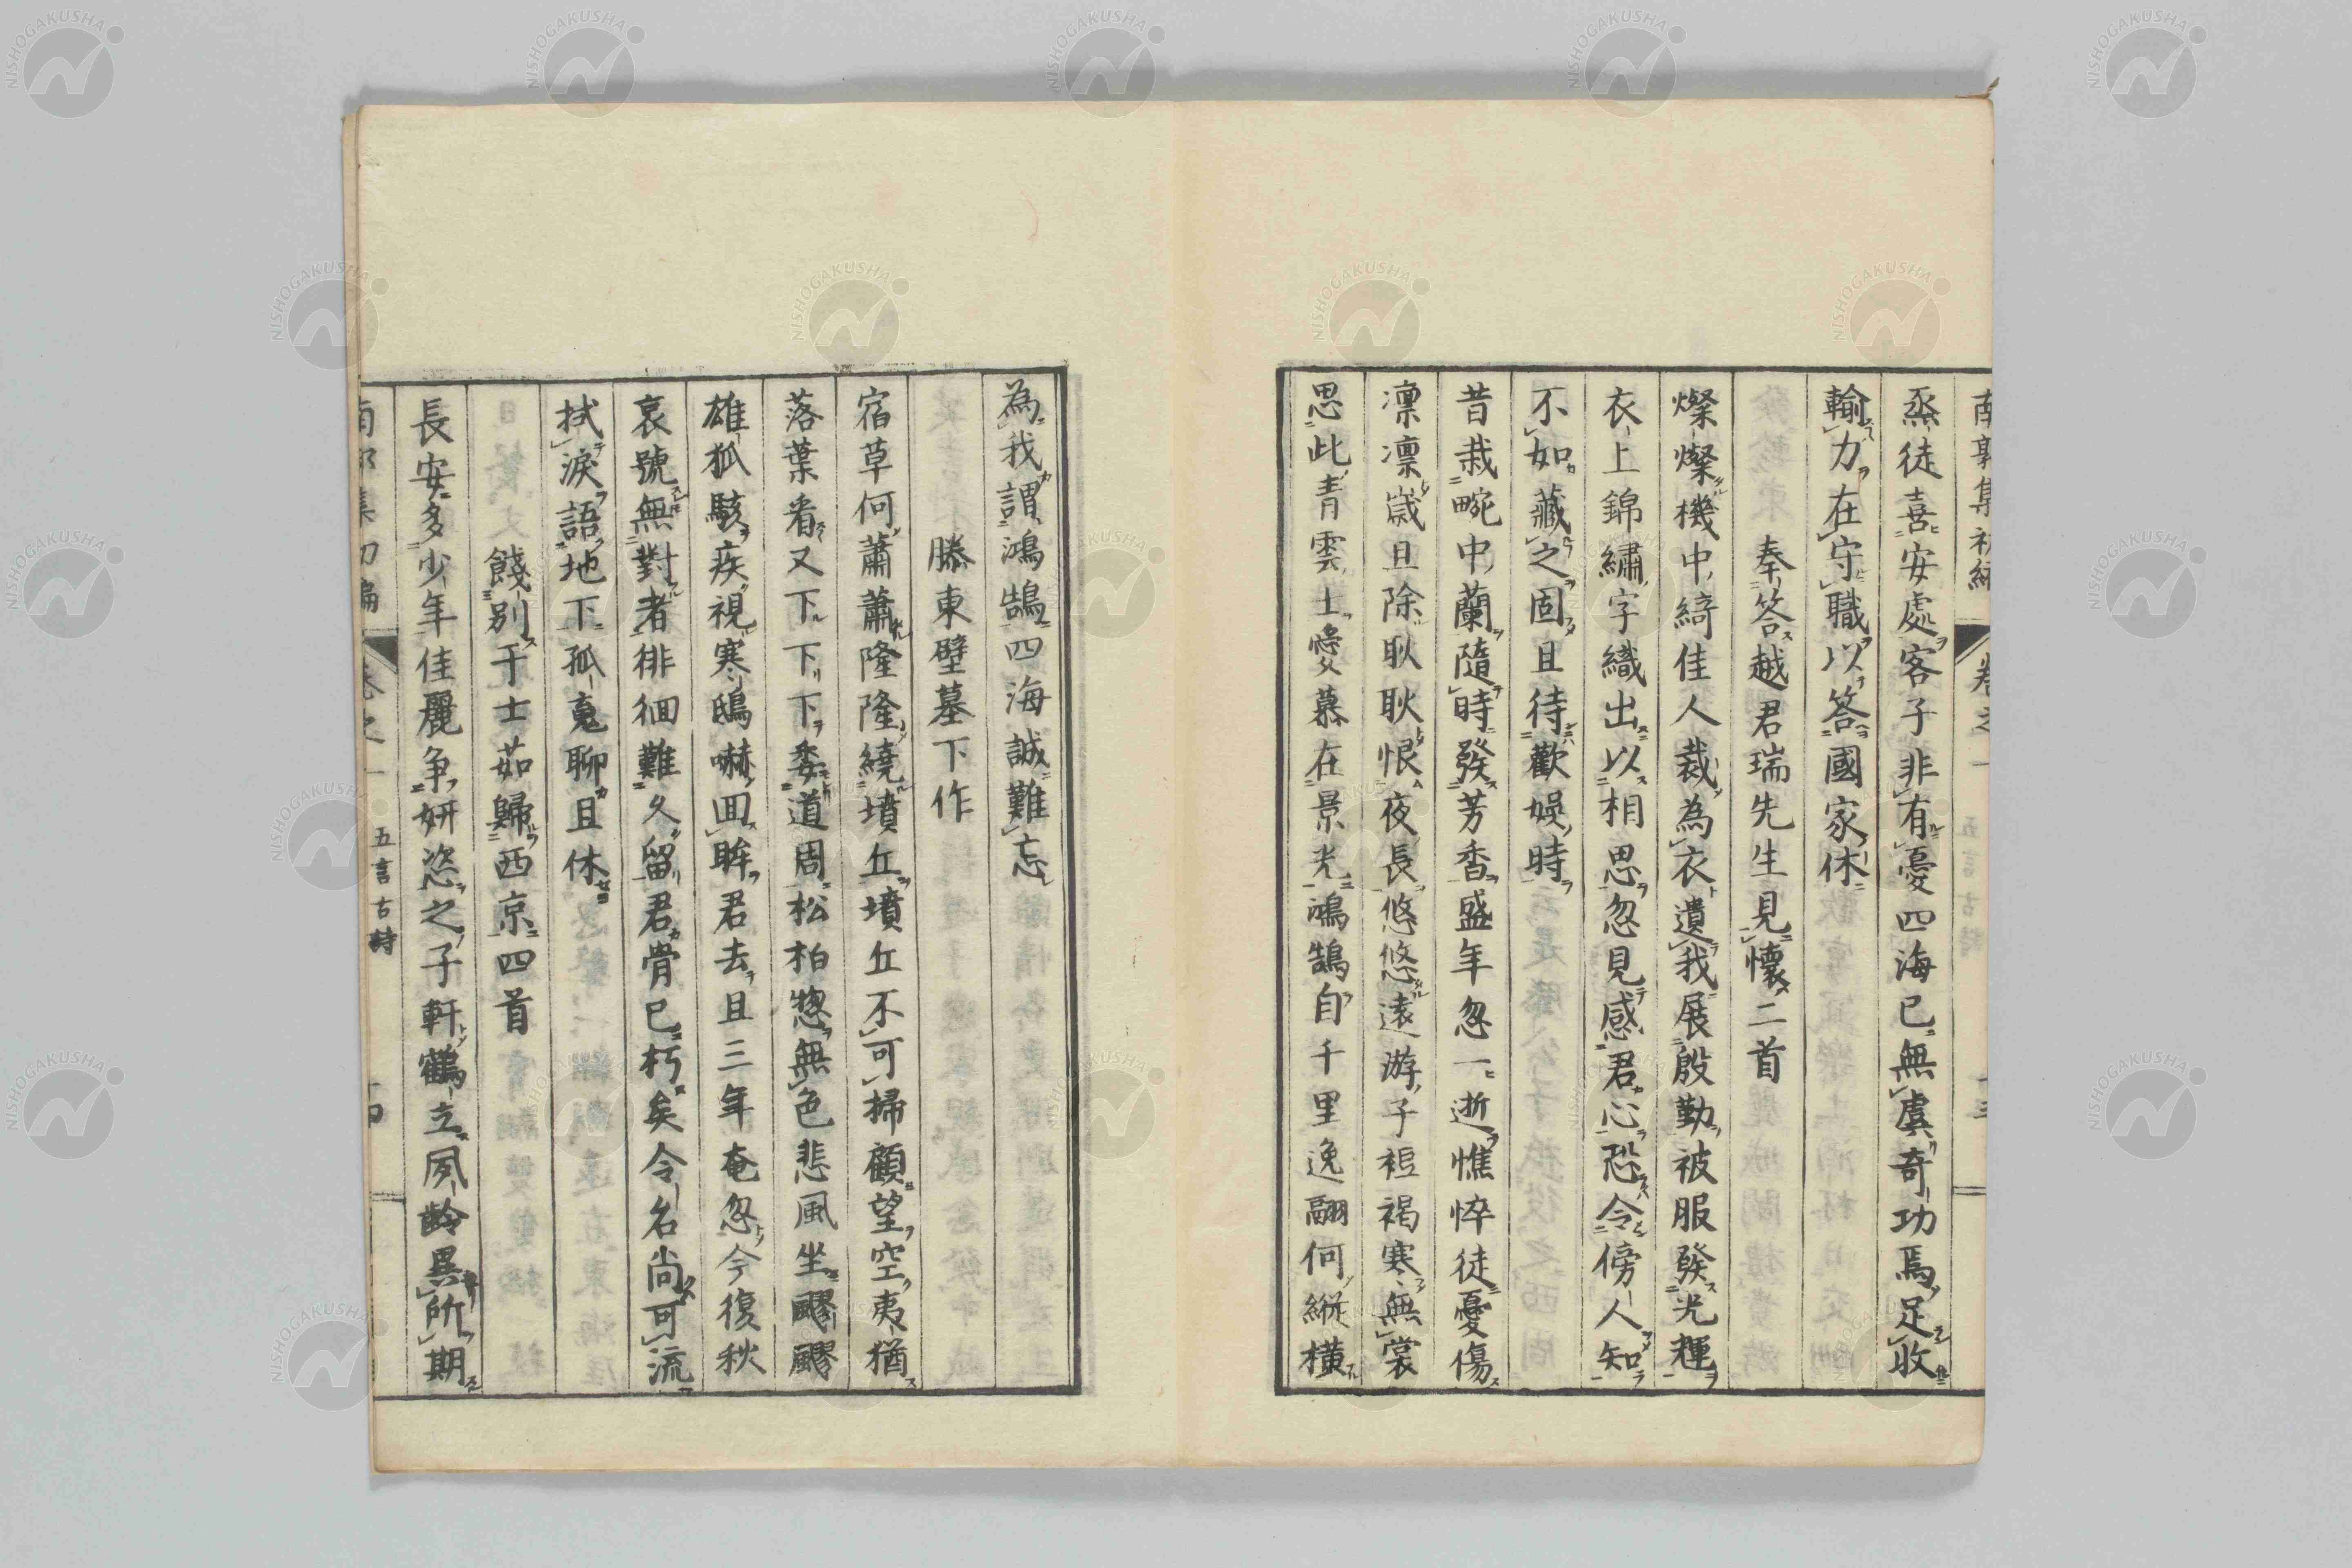 南郭集初編 卷之一
烝徒喜安處客子非有憂四海已無虞奇功焉足收
輸力在守職以答國家休
奉答越君瑞先生見懷二首
燦燦機中綺佳人裁為衣遺我展殷勤被服發光輝
衣上錦繡字織出以相思忽見感君心恐令傍人知
不如藏之固且待歡娛時
昔栽畹中蘭隨時發芳香盛年忽一逝憔悴徒憂傷
凛凛歳且除耿耿恨夜長悠悠遠游子裋褐寒無裳
思此青雲士慺慕在景光鴻鵠自千里逸翮何縱橫
為我謂鴻鵠四海誠難忘
滕東壁墓下作
宿草何蕭蕭隆隆繞墳丘墳丘不可掃顧望空夷猶
落葉看又下下下委道周松柏惣無色悲風坐飂飂
雄狐駭疾視寒鴟嚇囬眸君去且三年奄忽今復秋
哀號無對者徘徊難久留君骨已朽矣令名尚可流
拭淚語地下孤䰟聊且休
餞別于士茹歸西京四首
長安多少年佳麗争妍恣之子軒鶴立夙齡異所期
五言古詩
NISHOGAKUSHA